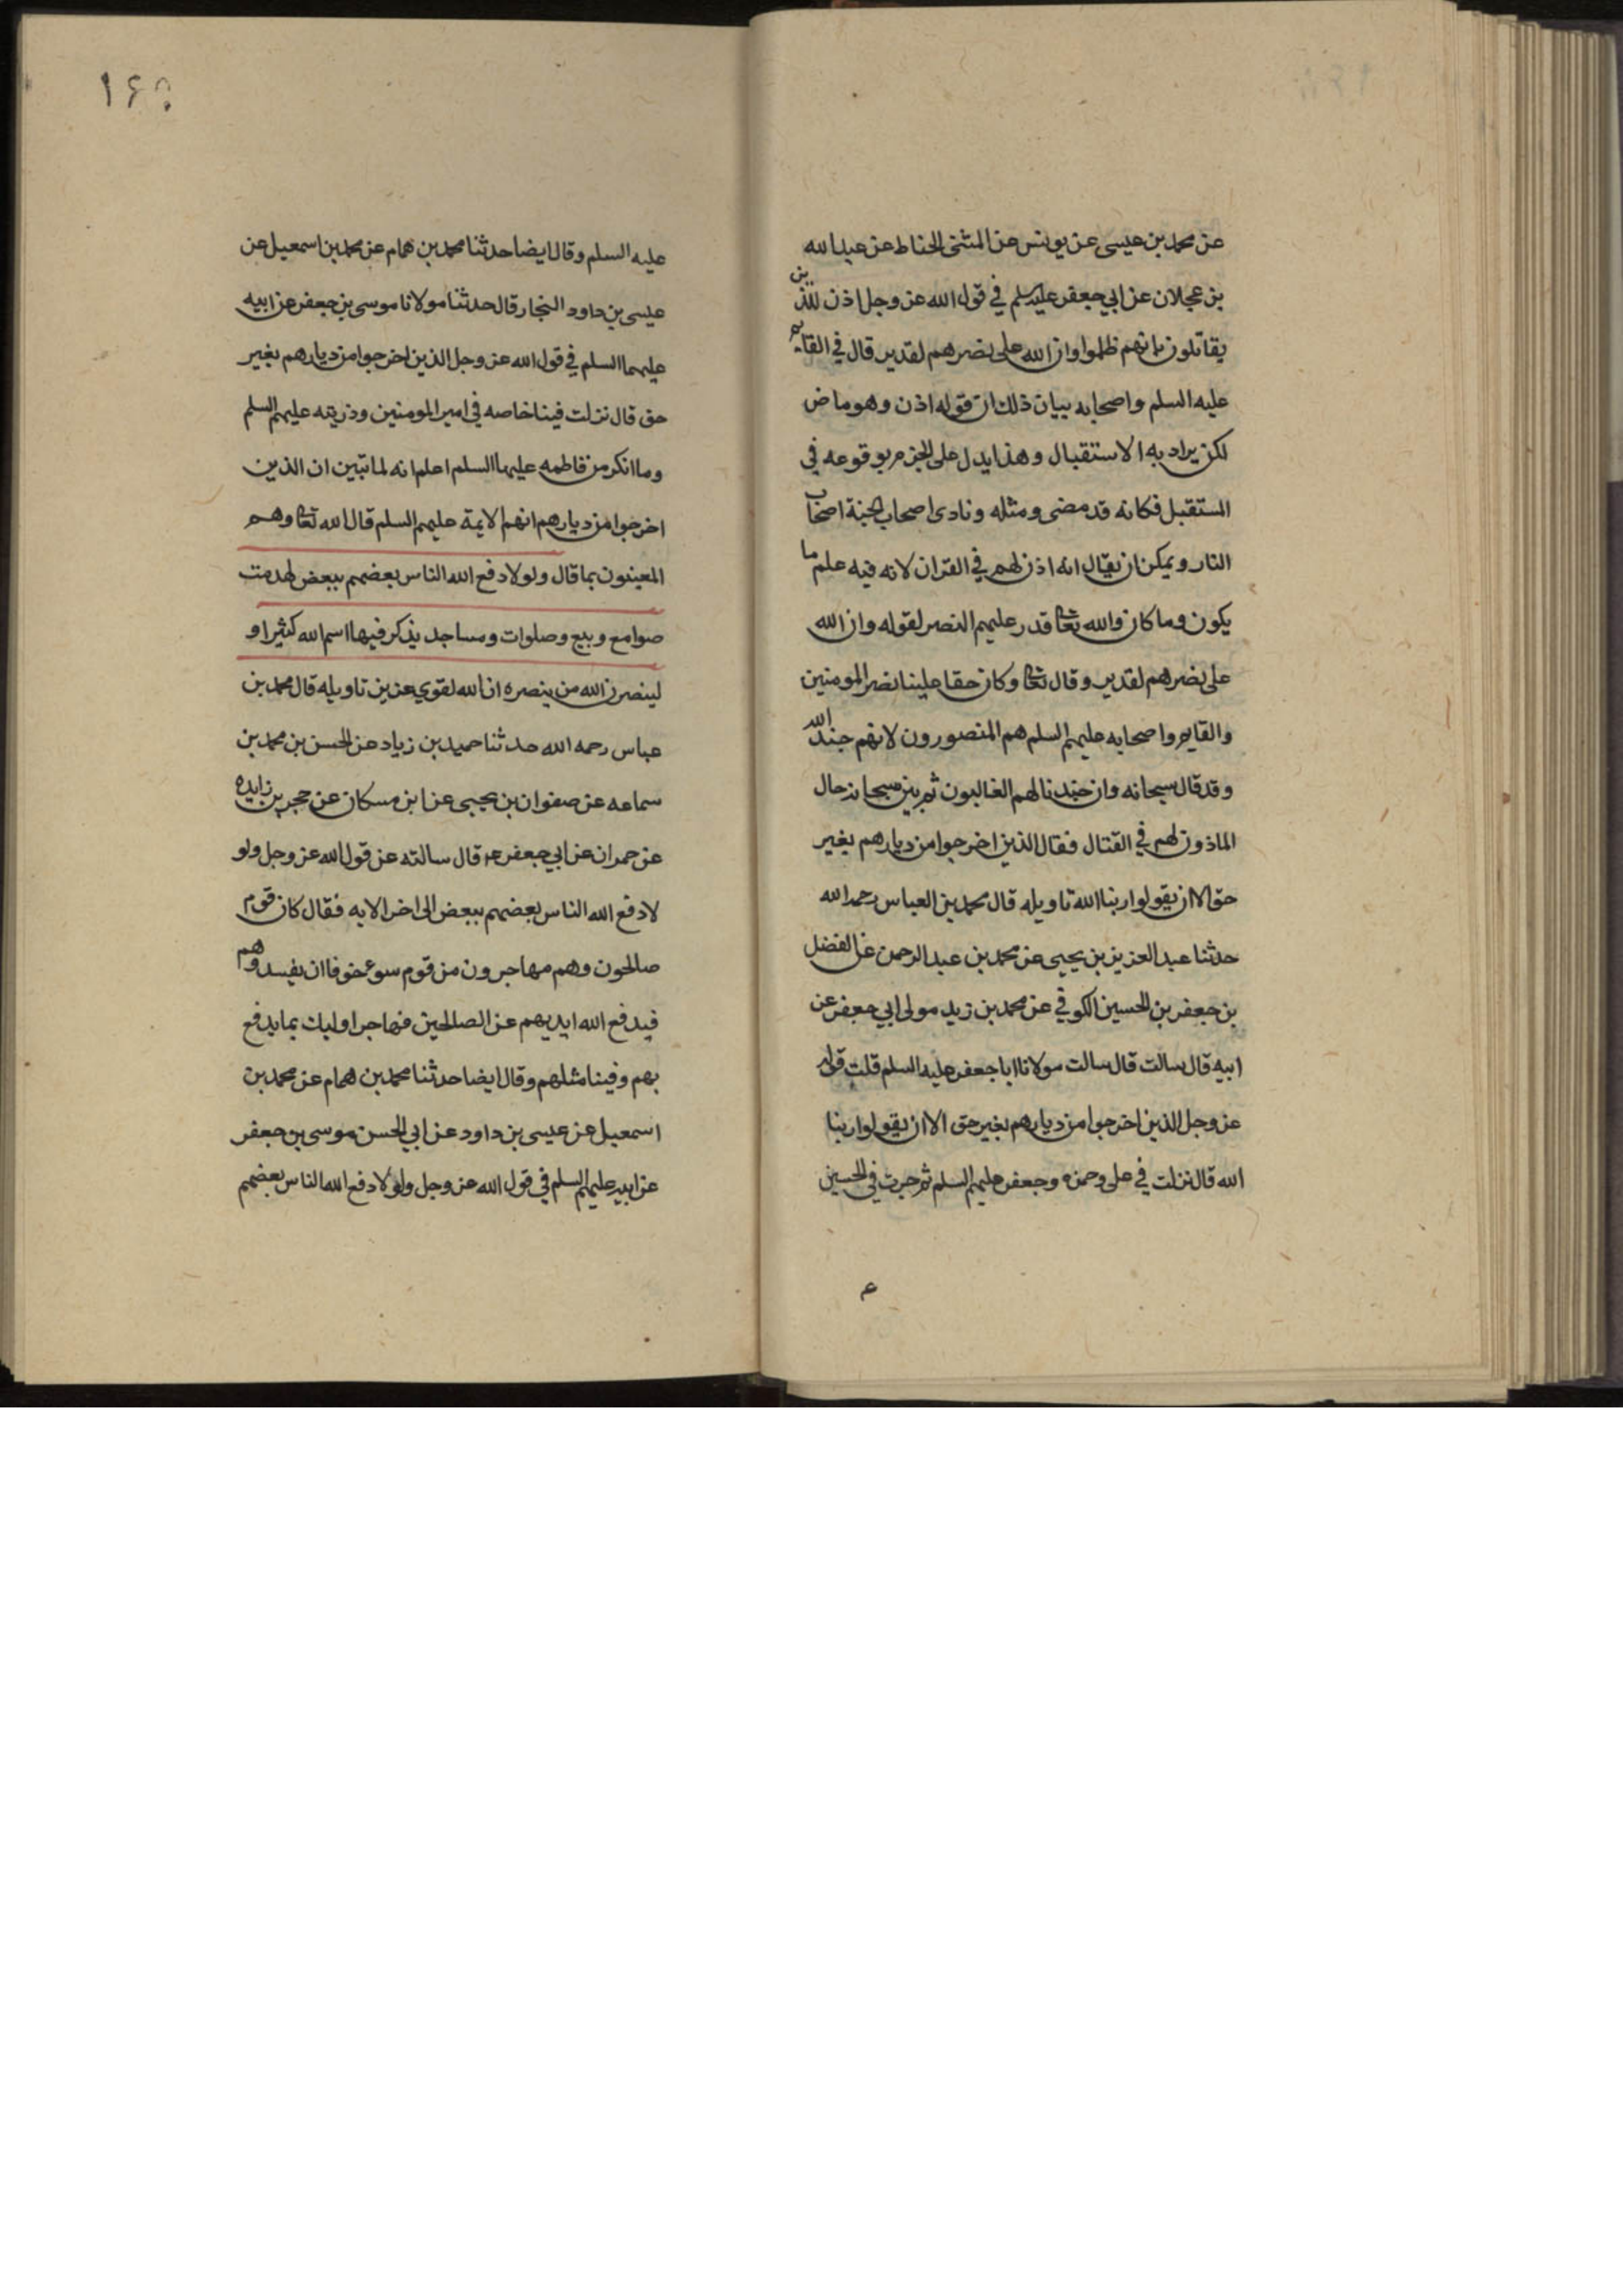 عن محمد بن عيسى عن يونس عن المثنى الحناط عن عبد الله
بن عجلان عن ابي جعفر عليه السلم في قول الله عز وجل اذن للذين
يقاتلون بانهم ظلموا وان الله على نصرهم لقدير قال في القايم
عليه السلم واصحابه بيان ذلك ان قوله اذن وهو ماض
لكن يراد به الاستقبال وهذا يدل على الجزم بوقوعه في
المستقبل فكانه قد مضى ومثله ونادى اصحاب الجنة اصحاب
النار ويمكن ان يقال انه اذن لهم في القران لانه فيه علم ما
يكون وما كان والله تعالى قدر عليهم النصر لقوله وان الله
على نصرهم لقدير وقال تعالى وكان حقا علينا نصر المومنين
والقايم واصحابه عليهم السلم هم المنصورون لانهم جند الله
وقد قال سبحانه وان جندنا لهم الغالبون ثم بين سبحانه حال
الماذون لهم في القتال فقال الذين اخرجوا من ديارهم بغير
حق الا ان يقولوا ربنا الله تاويله قال محمد بن العباس رحمه الله
حدثنا عبد العزيز بن يحيى عن محمد بن عبد الرحمن عن الفضل
بن جعفر بن الحسين الكوفي عن محمد بن زيد مولى ابي جعفر عن
ابيه قال سالت قال سالت مولانا ابا جعفر عليه السلم قلت قوله
عز وجل الذين اخرجوا من ديارهم بغير حق الا ان يقولوا ربنا
الله قال نزلت في على وحمزه وجعفر عليهم السلم ثم جرت في الحسين
ع
١٤٥
عليه السلم وقال ايضا حدثنا محمد بن همام عن محمد بن اسمعيل عن
عيسى بن داود النجار قال حدثنا مولانا موسى بن جعفر عن ابيه
عليهما السلم في قول الله عز وجل الذين اخرجوا من ديارهم بغير
حق قال نزلت فينا خاصه في امير المومنين وذريته عليهم السلم
وما انكر من فاطمه عليها السلم اعلم انه لما تبين ان الذين
اخرجوا من ديارهم انهم الايمة عليهم السلم قال الله تعالى وهم
المعينون بما قال ولولا دفع الله الناس بعضهم ببعض لهدمت
صوامع وبيع وصلوات ومساجد يذكر فيها اسم الله كثيرا و
لينصرن الله من ينصره ان الله لقوي عزيز تاويله قال محمد بن
عباس رحمه الله حدثنا حميد بن زياد عن الحسن بن محمد بن
سماعه عن صفوان بن يحيى عن ابن مسكان عن حجر بن زايده
عن حمران عن ابي جعفر ع قال سالته عن قول الله عز وجل ولو
لا دفع الله الناس بعضهم ببعض الى اخر الايه فقال كان قوم
صالحون وهم مهاجرون من قوم سوء خوفا ان يفسدوهم
فيدفع الله ايديهم عن الصالحين فهاجر اوليك بما يدفع
بهم وفينا مثلهم وقال ايضا حدثنا محمد بن همام عن محمد بن
اسمعيل عن عيسى بن داود عن ابي الحسن موسى بن جعفر
عن ابيه عليهم السلم في قول الله عز وجل ولولا دفع الله الناس بعضهم